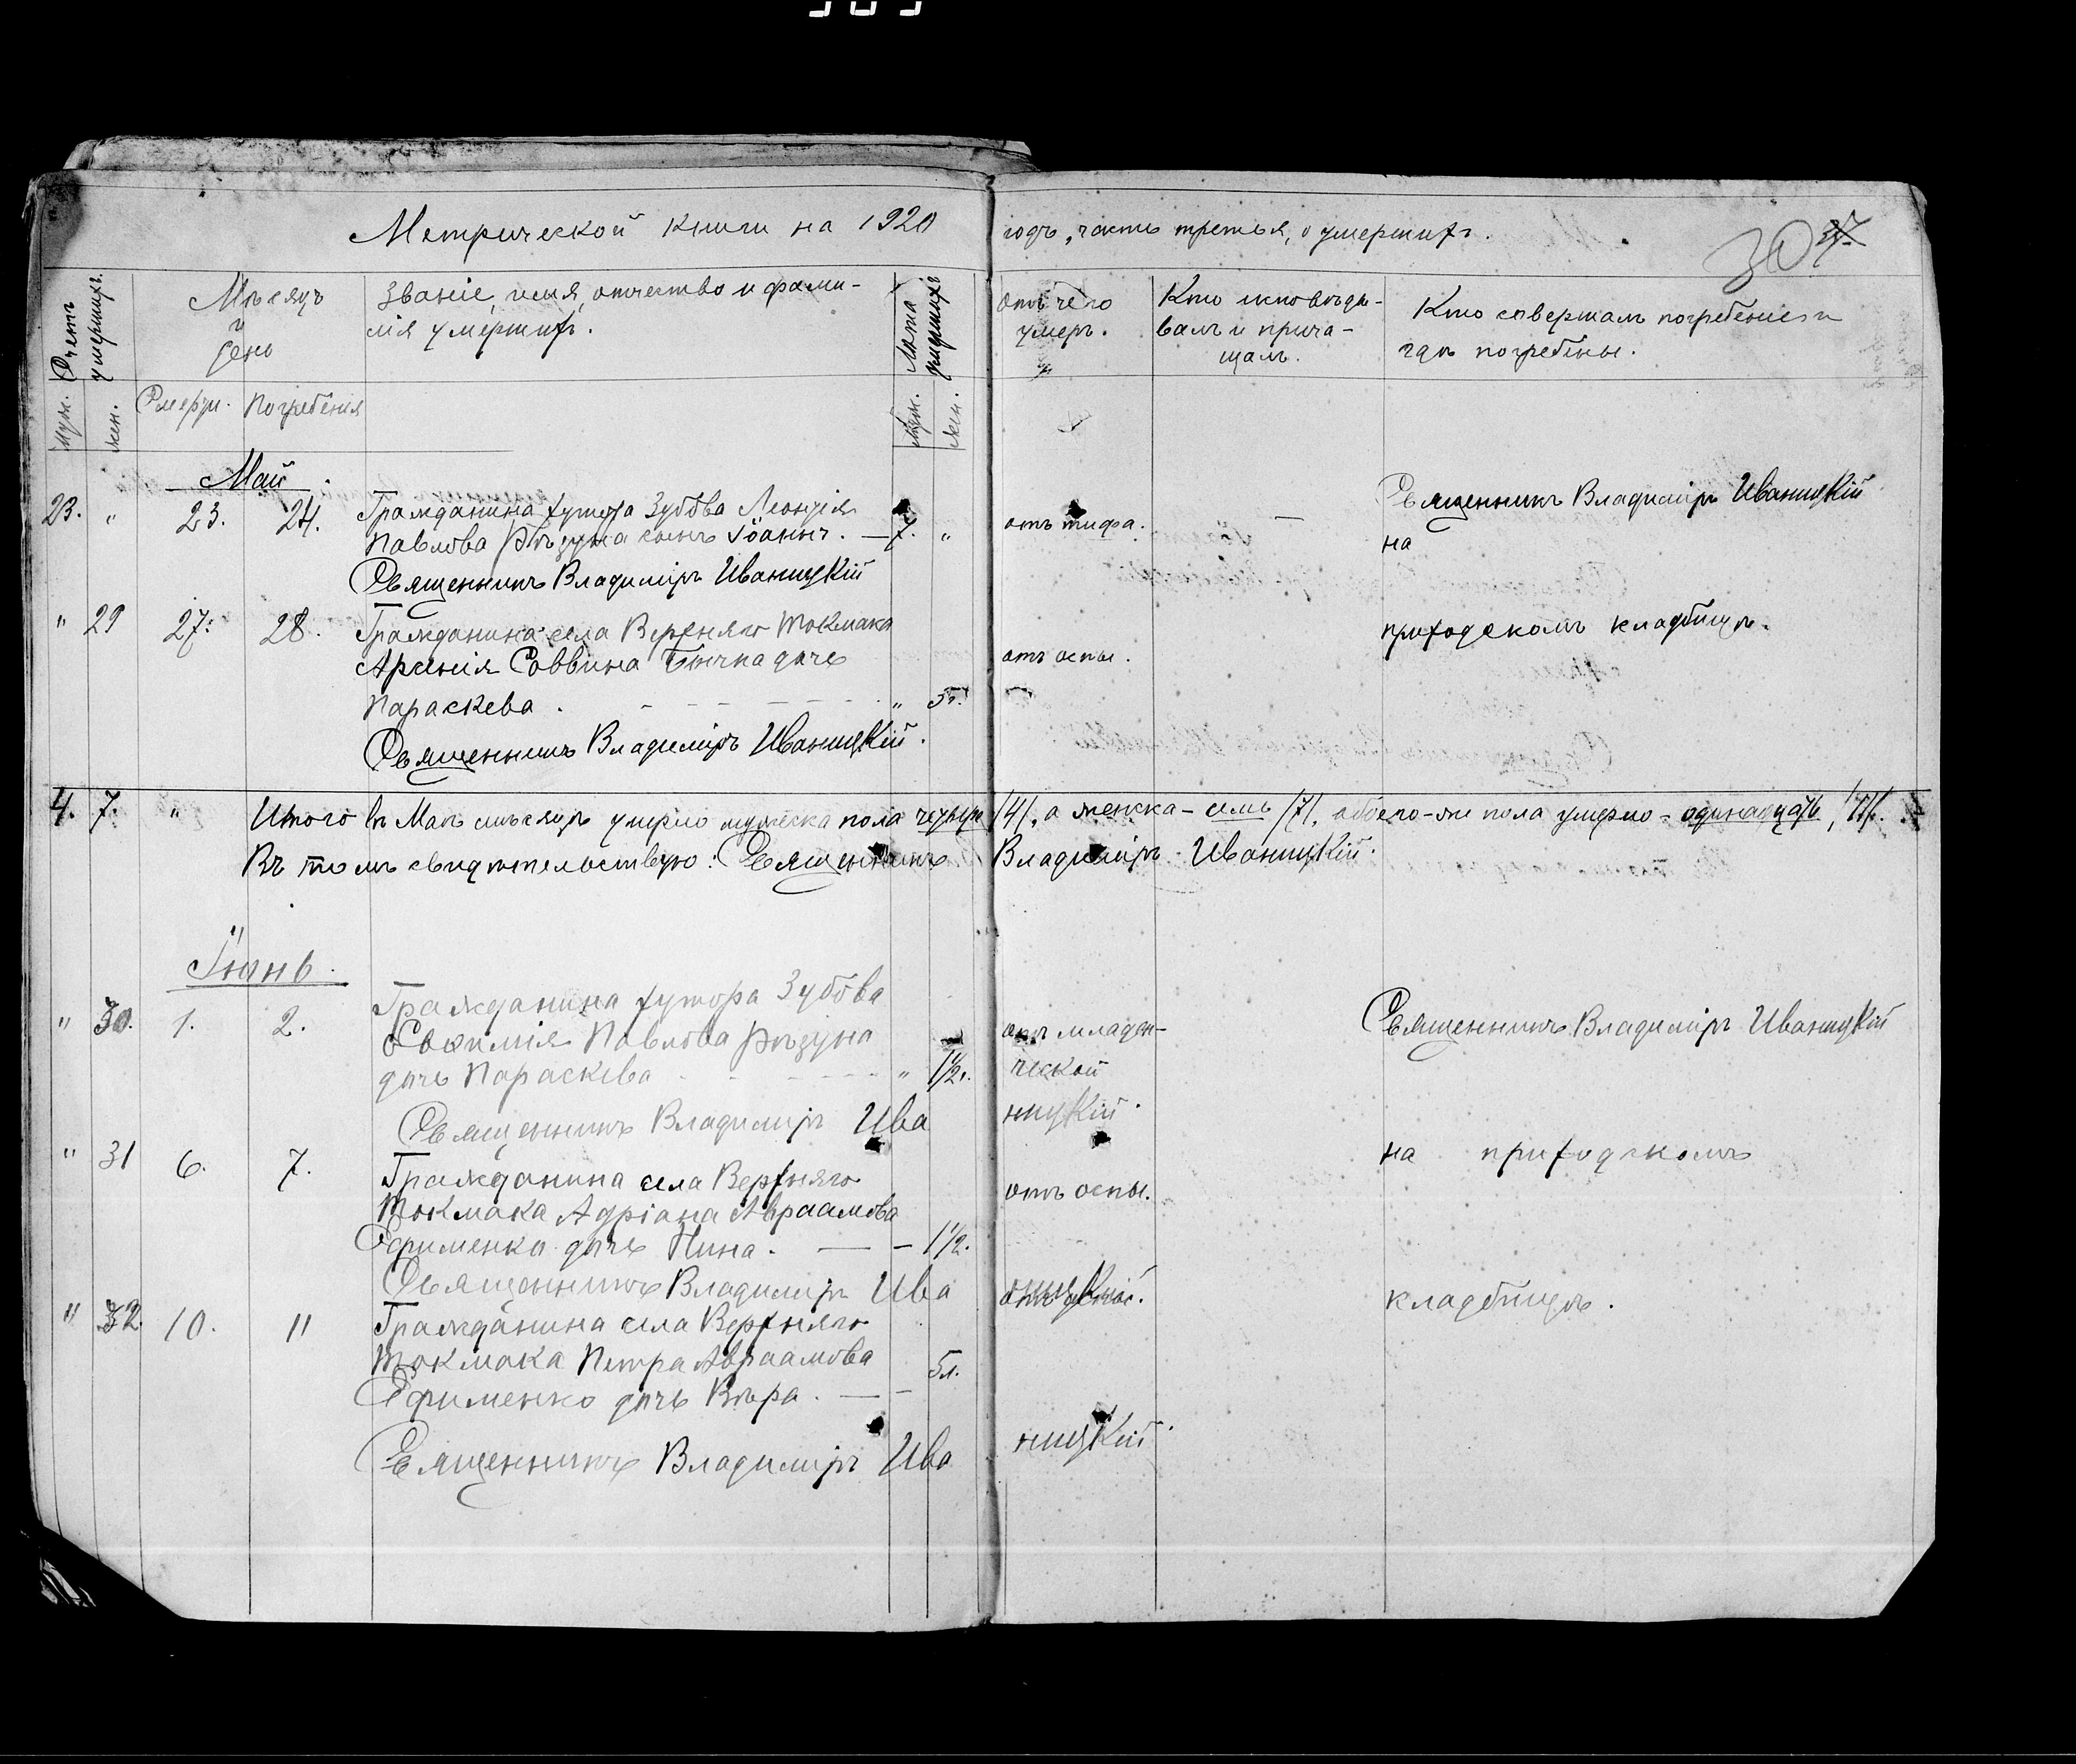 Метрической книги на 1920 годъ, часть третья, о умершихъ.
30 37
Счетъ умершихъ.
Мѣсяцъ и день
Званіе, имя, отчество и фами-
лія умершихъ.
Лѣта умершихъ
отъ чего умеръ.
Кто исповѣды-
валъ и прича-
щалъ.
Кто совершалъ погребеніе и
гдѣ погребены.
Муж. Жен. Смерти. Погребенія Муж. Жен.
Май.
23. " 23. 24. Гражданина хутора Зубова Леонтія
Павлова Рѣзуна сынъ Іоаннъ. — 7. " отъ тифа. — Священникъ Владиміръ Иваницкій
на
Священникъ Владиміръ Иваницкій
" 29 27. 28. Гражданина села Верхняго Токмака
Арсенія Саввина Бычка дочь
Параскева. " 5 г. отъ оспы. приходскомъ кладбищѣ.
Священникъ Владиміръ Иваницкій.
4. 7. " Итого въ Маѣ мѣсяцѣ умерло мужеска пола четыре /4/, а женска - семь /7/, обоего-же пола умерло - одинадцать /11/.
Въ томъ свидѣтельствую: Священникъ Владиміръ Иваницкій.
Іюнь.
" 30. 1. 2. Гражданина хутора Зубова
Евфимія Павлова Рѣзуна
дочь Параскева " 1 1/2 г. отъ младен-
ческой
Священникъ Владиміръ Иваницкій
Священникъ Владиміръ Иваницкій.
" 31 6. 7. Гражданина села Верхняго
Токмака Адріана Авраамова
Ефименко дочь Нина. — — 1 1/2. отъ оспы. на приходскомъ
Священникъ Владиміръ Иваницкій.
" 32. 10. 11 Гражданина села Верхняго
Токмака Петра Авраамова
Ефименко дочь Вѣра. — — 5 л. кладбищѣ.
Священникъ Владиміръ Иваницкій.